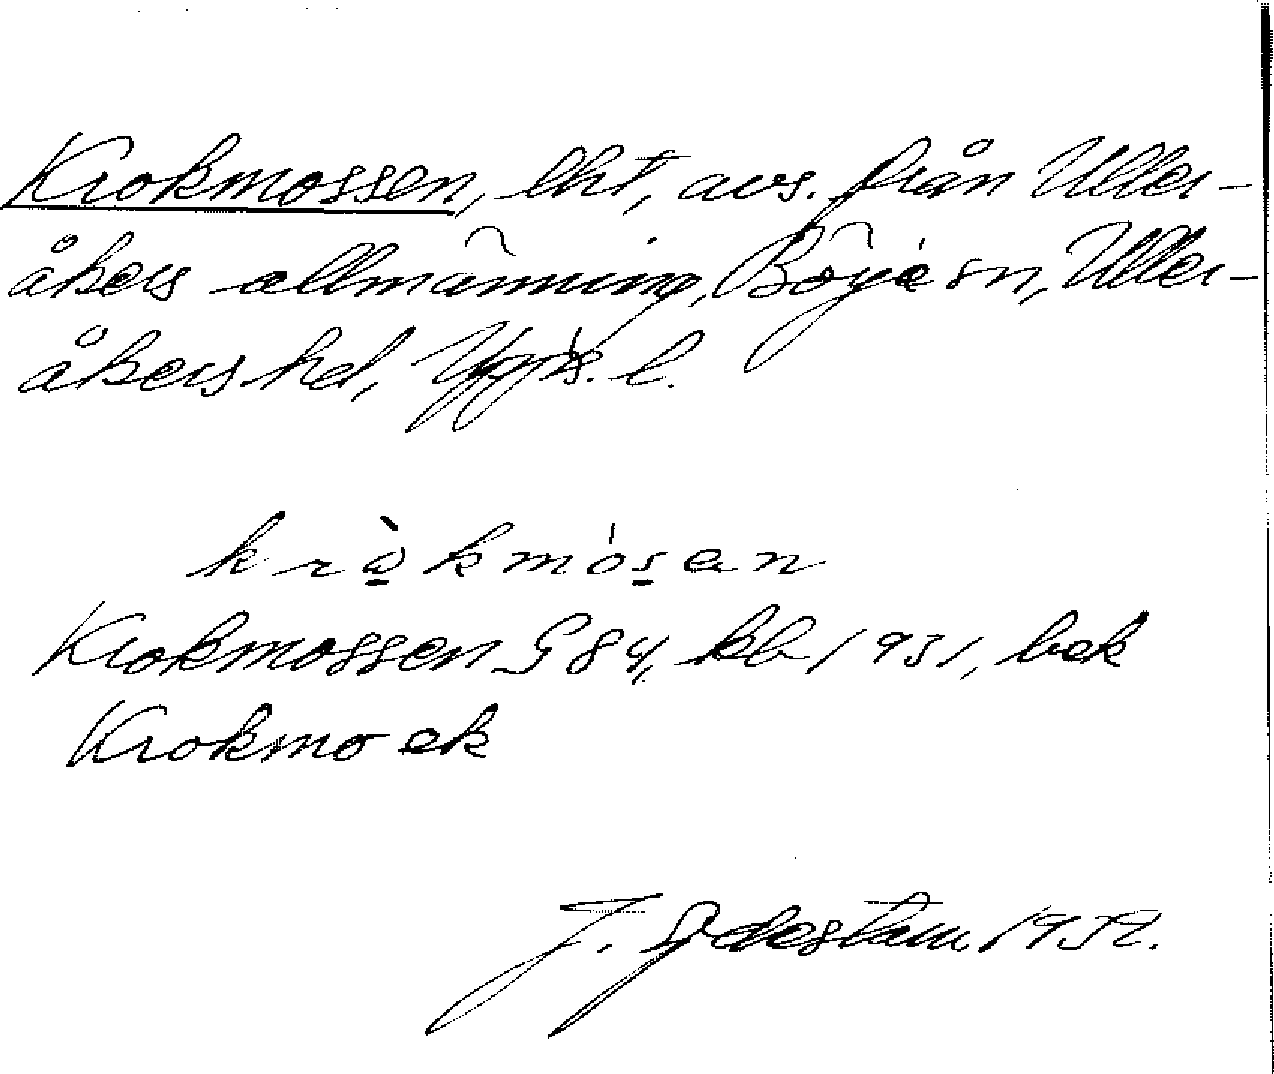 Krokmossen, lht, avs. från Uller-
åkers allmänning, Börje sn, Uller-
åkers hd, Upps. l.
kròkmósen
Krokmossen G 84, kb 1931, bek
Krokmo ek
J. Ejdestam 1952.